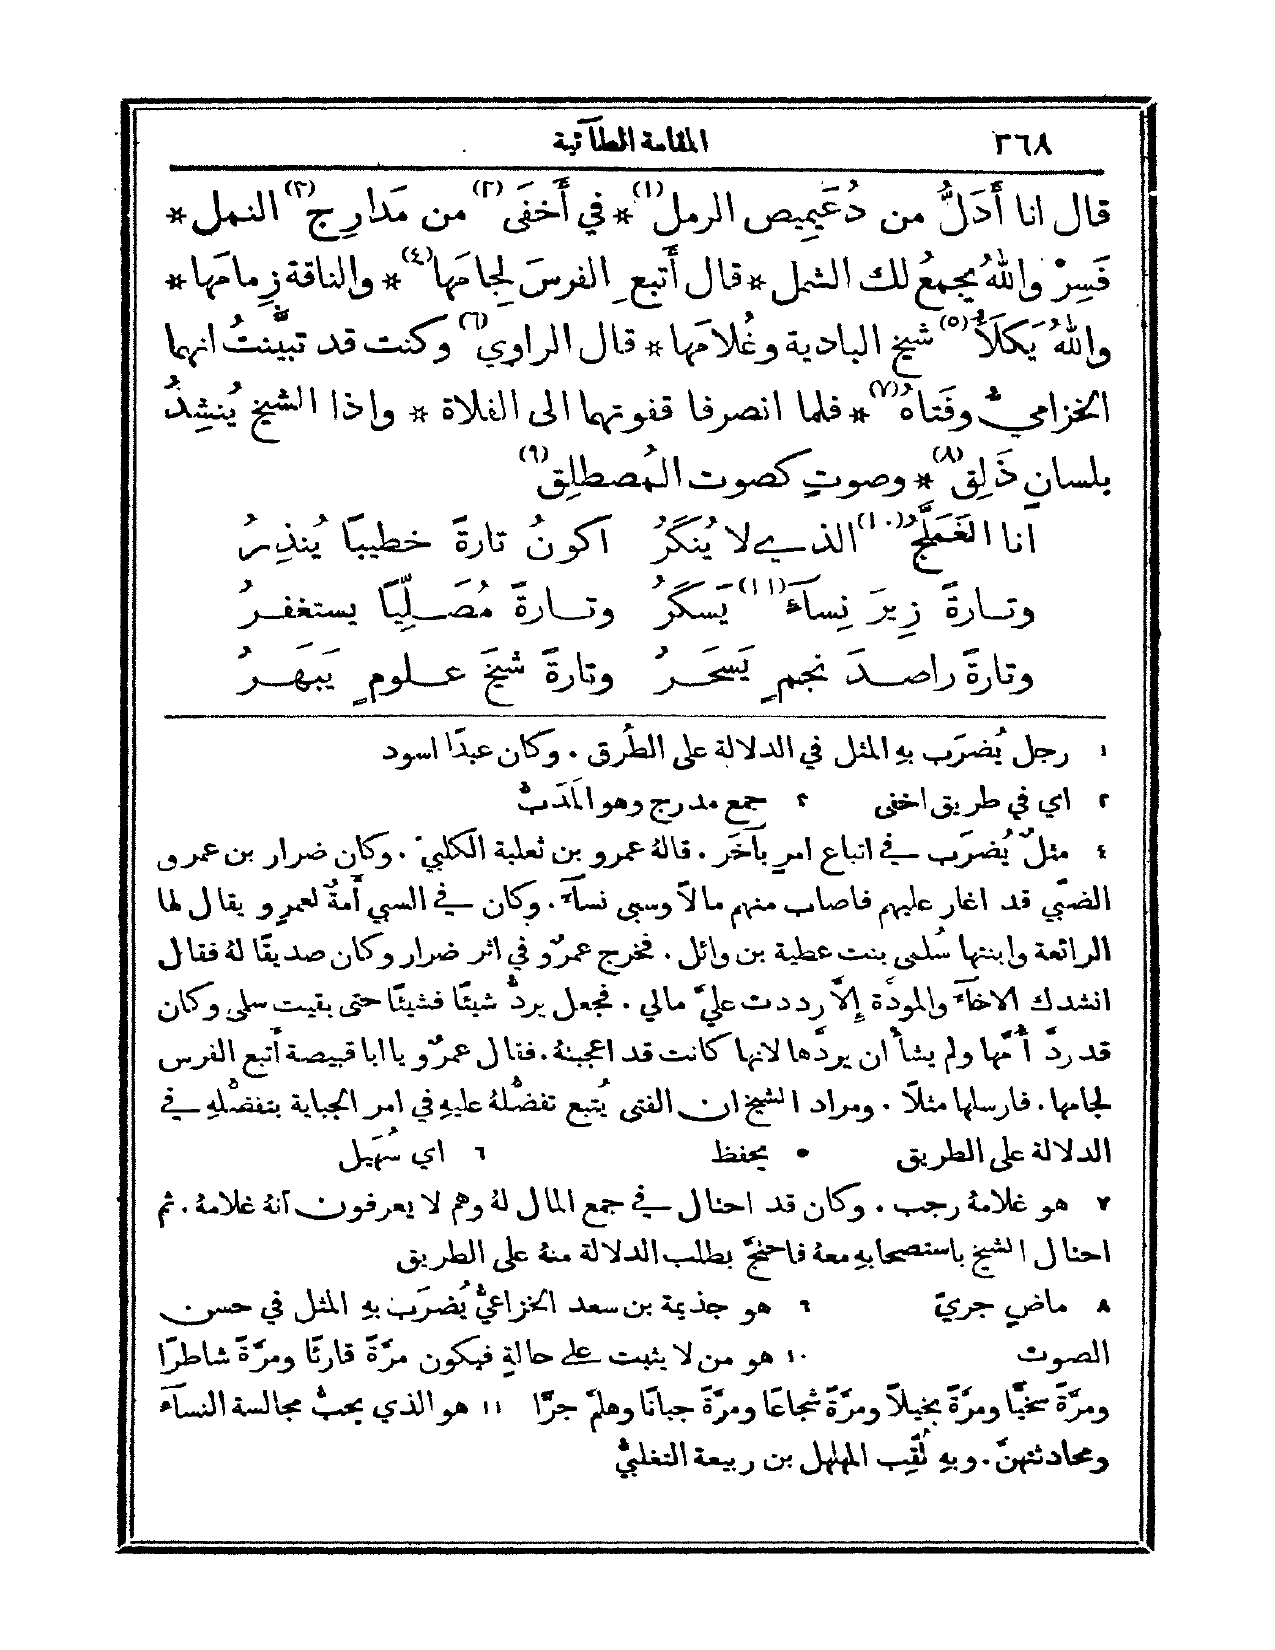 ٣٦٨ المقامة الطآئية
قال انا أَدَلُّ من دُعَيميص الرمل(١) * في أَخفَى(٢) من مَدارِج(٣) النمل *
فَسِرْ واللهُ يجمعُ لك الشمل * قال أَتبع الفرسَ لِجامَها(٤) * والناقة زِمامَها *
واللهُ يَكلَأُ(٥) شيخ البادية وغُلامَها * قال الراوي(٦) وكنت قد تبيَّنتُ انهما
الخزاميُّ وفَتاهُ(٧) * فلما انصرفا قفوتهما الى الفلاة * واذا الشيخ يُنشِدُ
بلسانٍ ذَلِق(٨) * وصوتٍ كصوت المُصطلِق(٩)
انا الغَمَلَّجُ(١٠) الذي لا يُنكَرُ اكونُ تارةً خطيبًا يُنذِرُ
وتارةً زِيرَ نِسآءٍ(١١) يَسكَرُ وتارةً مُصَلِّيًا يستغفرُ
وتارةً راصدَ نجمٍ يَسحَرُ وتارةً شيخَ علومٍ يَبهَرُ
١ رجل يُضرَب بهِ المثل في الدلالة على الطُرق. وكان عبدًا اسود
٢ اي في طريق اخفى ٣ جمع مدرج وهو المَدَبُّ
٤ مثلٌ يُضرَب في اتباع امرٍ بآخَر. قالهُ عمرو بن ثعلبة الكلبيّ. وكان ضرار بن عمرو
الضبّي قد اغار عليهم فاصاب منهم مالًا وسبى نسآءً. وكان في السبي أَمةٌ لعمرو يقال لها
الرائعة وابنتها سُلمى بنت عطية بن وائل. فخرج عمرٌو في اثر ضرار وكان صديقًا لهُ فقال
انشدك الاخآءَ والمودّة إلَّا رددت عليَّ مالي. فجعل يردُّ شيئًا فشيئًا حتى بقيت سلمى وكان
قد ردَّ أُمَّها ولم يشأْ ان يردَّها لانها كانت قد اعجبتهُ. فقال عمرٌو يا ابا قبيصة أَتبع الفرس
لجامها. فارسلها مثلًا. ومراد الشيخ ان الفتى يُتبع تفضُّلهُ عليهِ في امر الجباية بتفضُّلهِ في
الدلالة على الطريق ٥ يحفظ ٦ اي سُهَيل
٧ هو غلامهُ رجب. وكان قد احتال في جمع المال لهُ وهم لا يعرفون انهُ غلامهُ. ثم
احتال الشيخ باستصحابهِ معهُ فاحتجَّ بطلب الدلالة منهُ على الطريق
٨ ماضٍ جريّ ٩ هو جذيمة بن سعد الخزاعيُّ يُضرَب بهِ المثل في حسن
الصوت ١٠ هو من لا يثبت على حالةٍ فيكون مرّةً قارئًا ومرّةً شاطرًا
ومرّةً سخيًّا ومرّةً بخيلًا ومرّةً شجاعًا ومرّةً جبانًا وهلمَّ جرًّا ١١ هو الذي يحبُّ مجالسة النسآء
ومحادثتهنَّ. وبهِ لُقِّب المهلهل بن ربيعة التغلبيُّ